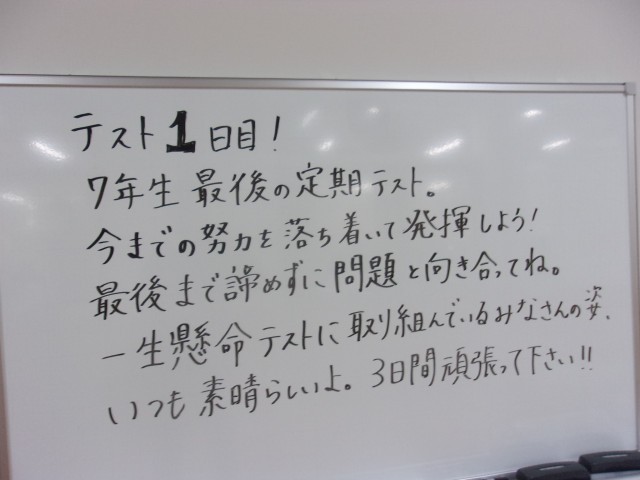 テスト1日目!
7年生 最後の定期テスト。
今までの努力を落ち着いて発揮しよう!
最後まで諦めずに問題と向き合ってね。
一生懸命テストに取り組んでいるみなさんの姿、
いつも素晴らしいよ。3日間頑張って下さい!!